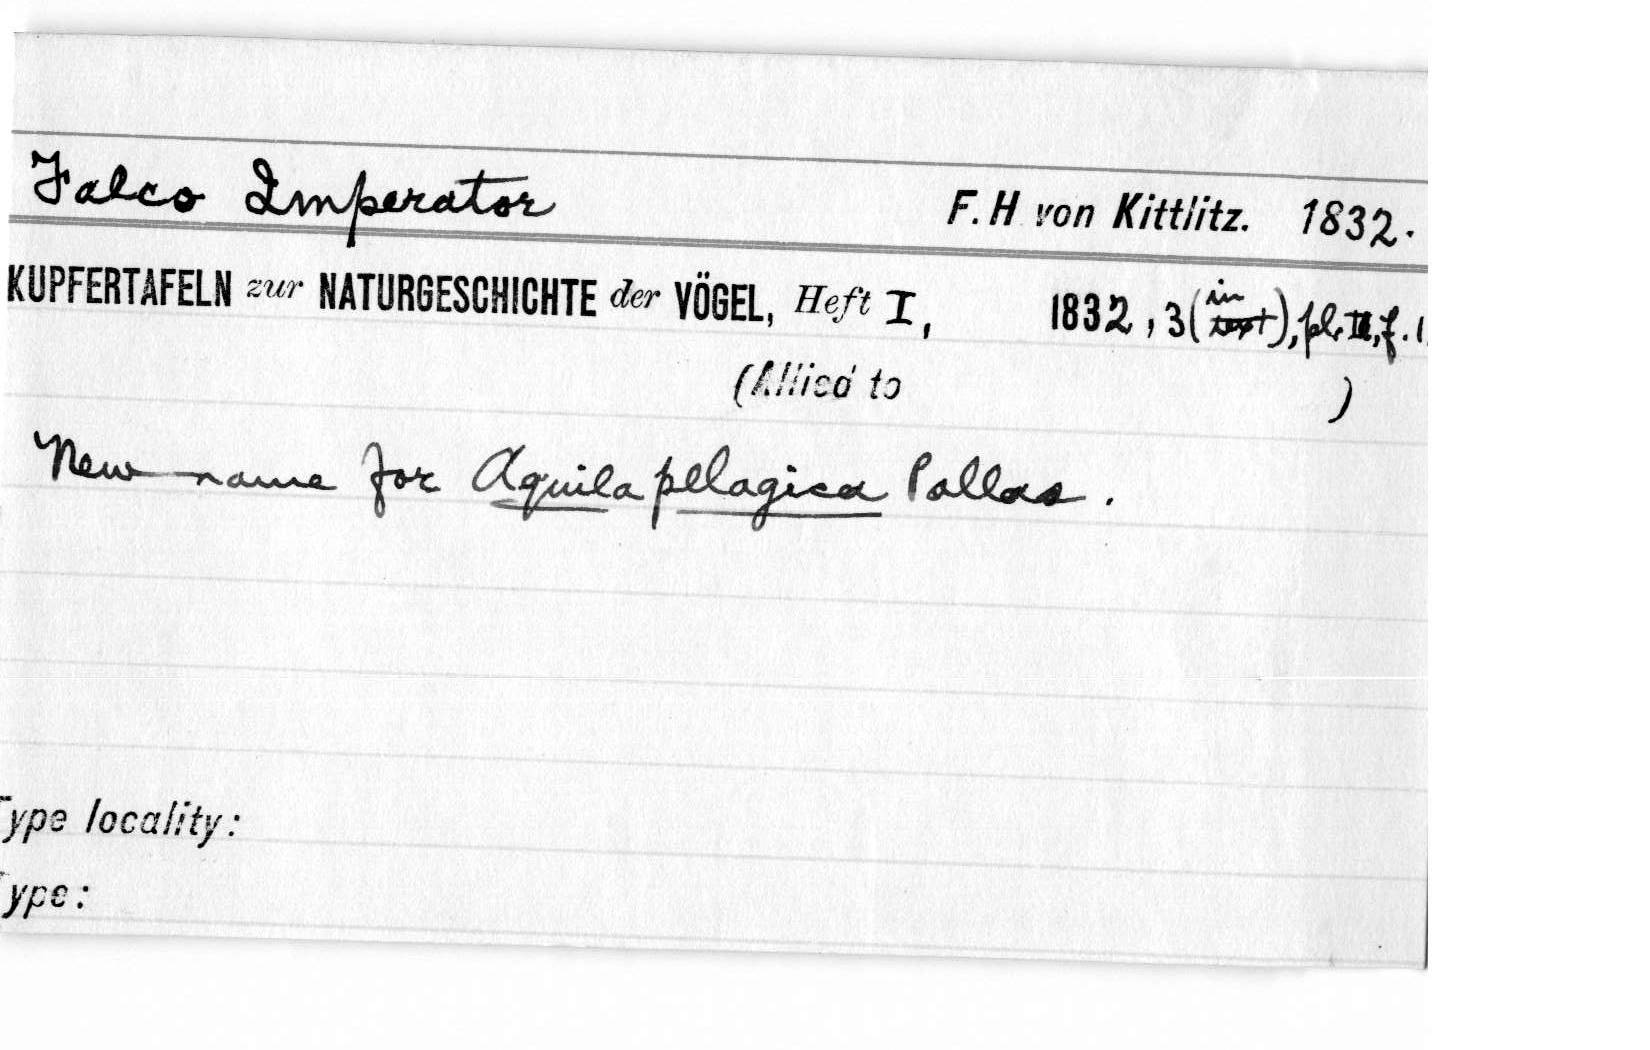 Falco Imperator F. H von Kittlitz. 1832.
KUPFERTAFELN zur NATURGESCHICHTE der VÖGEL, Heft I, 1832, 3 (in text), pl. II, f. 1
(Allied to )
New name for Aquila pelagica Pallas.
Type locality:
Type: